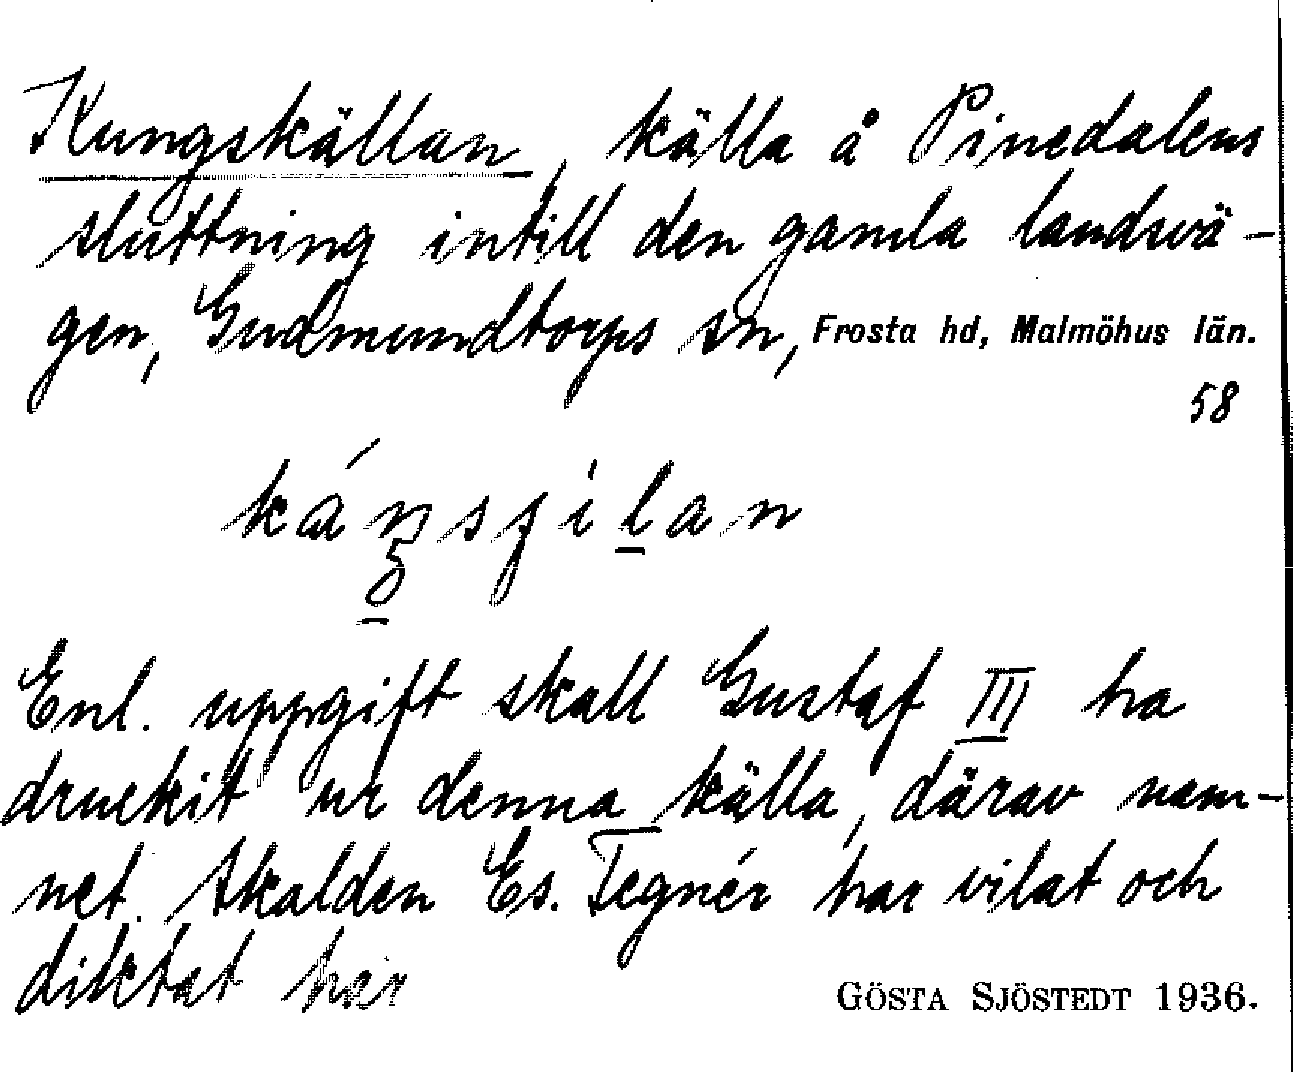 Kungskällan, källa å Pinedalens
sluttning intill den gamla landsvä-
gen, Gudmundtorps sn, Frosta hd, Malmöhus län.
58
Enl. uppgift skall Gustaf III ha
druckit ur denna källa, därav nam-
net. Skalden Es. Tegnér har vilat och
diktat här
GÖSTA SJÖSTEDT 1936.